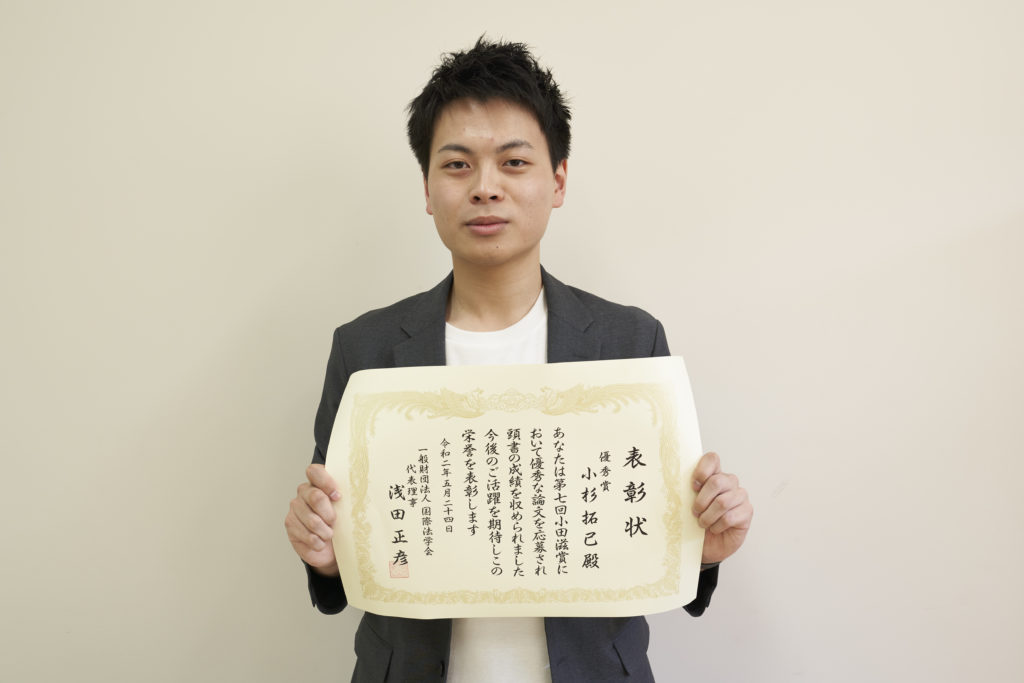 表彰状
優秀賞
小杉拓己殿
あなたは第七回小田滋賞に
おいて優秀な論文を応募され
頭書の成績を収められました
今後のご活躍を期待しこの
栄誉を表彰します
令和二年五月二十四日
一般財団法人 国際法学会
代表理事
浅田正彦